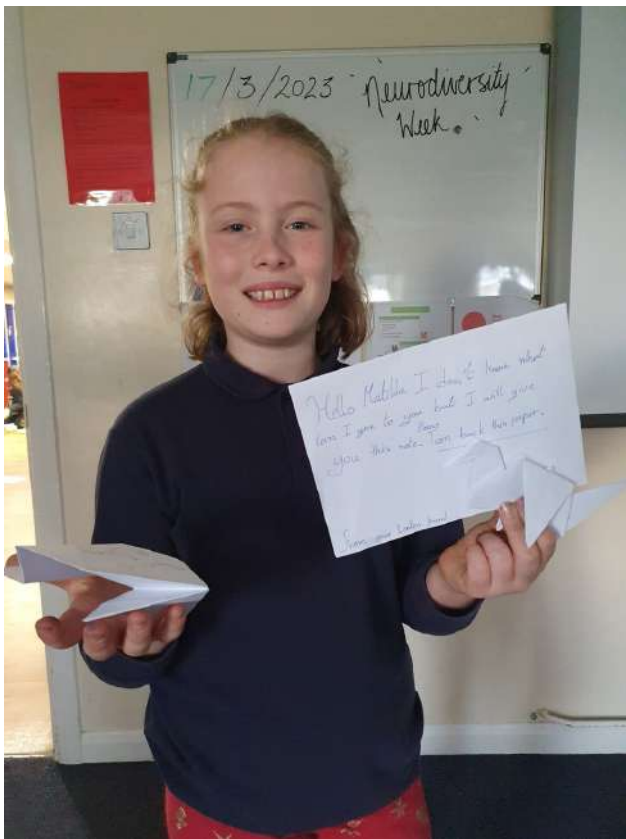 17/3/2023 Neurodiversity
Week.
Hello Matilda I don't know what
can I give to you but I will give
you this note.
back this paper.
From your